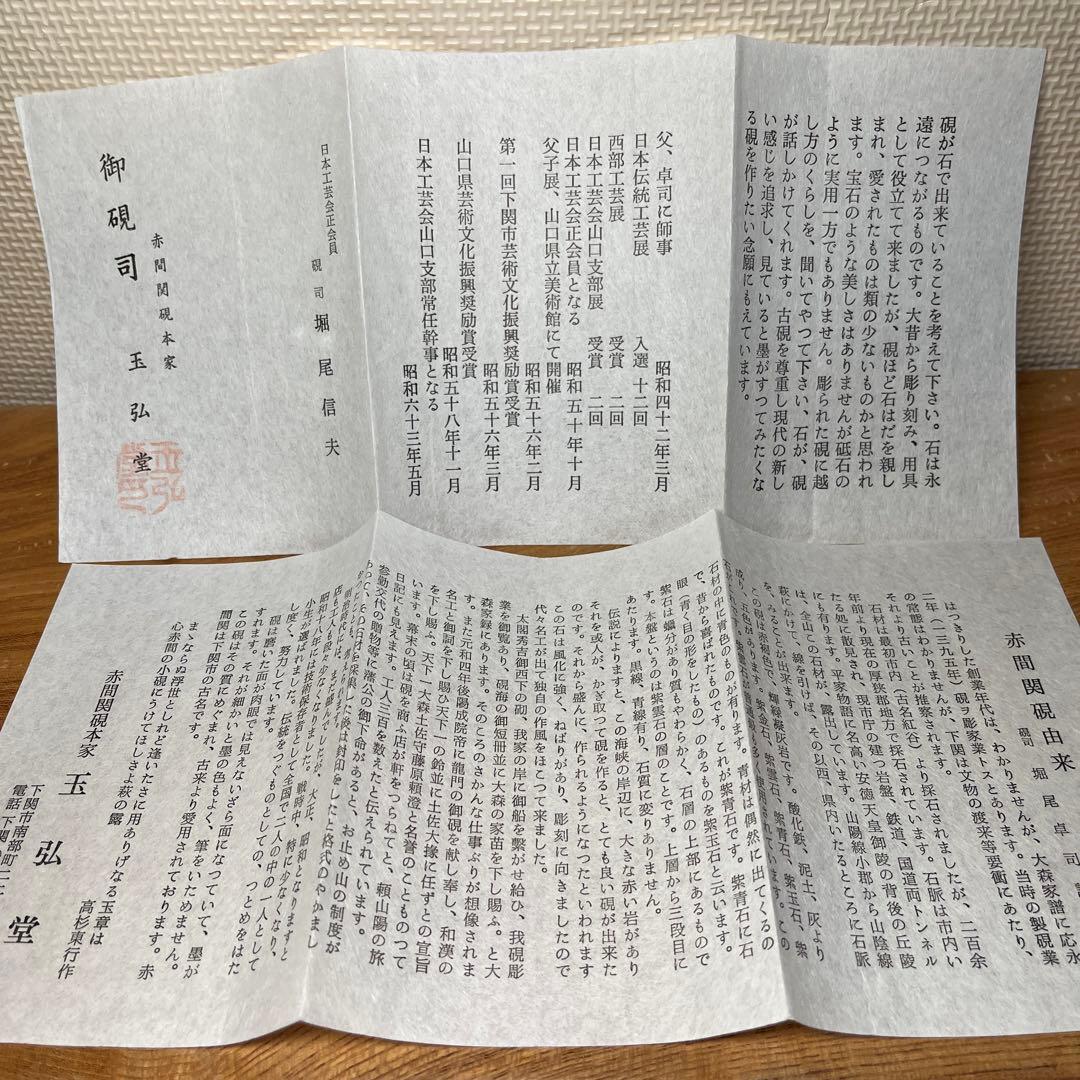 硯が石で出来ていることを考えて下さい。石は永
遠につながるものです。大昔から彫り刻み、用具
として役立てて来ましたが、硯ほど石はだを親し
まれ、愛されたものは類の少ないものかと思われ
ます。宝石のような美しさはありませんが砥石の
ように実用一方でもありません。彫られた硯に越
し方のくらしを、聞いてやつて下さい、石が、硯
が話しかけてくれます。古硯を尊重し現代の新し
い感じを追求し、見ていると墨がすつてみたくな
る硯を作りたい念願にもえています。
父、卓司に師事 昭和四十二年三月
日本伝統工芸展 入選 十二回
西部工芸展 受賞 二回
日本工芸会山口支部展 受賞 二回
日本工芸会正会員となる 昭和五十年十月
父子展、山口県立美術館にて開催
昭和五十六年二月
第一回下関市芸術文化振興奨励賞受賞
昭和五十六年三月
山口県芸術文化振興奨励賞受賞
昭和五十八年十一月
日本工芸会山口支部常任幹事となる
昭和六十三年五月
日本工芸会正会員
硯司 堀尾信夫
赤間関硯本家
御硯司 玉弘堂
赤間関硯由来
硯司 堀尾卓司
はつきりした創業年代は、わかりませんが、大森家譜に応永
二年(一三九五年)硯う彫家業トスとあります。当時の製硯業
の常態はわかりませんが、下関は文物の渡来等要衝にあたり、
それより古いことが推察されます。石脈は市内いい
石材は最初市内(古名紅谷)より採石されましたが、二百余
年前より現在の厚狭郡地方で採石されています。
たる処に散見され、現市庁の建つ岩盤、鉄道、国道両トンネル
にも有ります。平家物語に名高い安徳天皇御陵の背後の丘陵
は、全山この石材が、露出しています。山陽線小郡から山陰線
萩にかけて、線を引けば、その以西、県内いたるところに石脈
を、みることが出来ます。
この硯は赤褐色で、輝緑凝灰岩です。酸化鉄、泥土、灰より
成り、五色があります。紫金石、紫雲石、紫青石、紫玉石、紫
石材の中に青色のものが有ります。青材は偶然に出てくるの
で、昔から喜ばれたものです。これが紫青石です。紫青石に石
眼(青の目の形をしたもの)のあるものを紫玉石と云います。
紫石は蠟分があり質もやわらかく、石層の上部にあるもので
す。本盤というのは紫雲石の層のことです。上層から三段目に
あたります。黒線、青線有り、石質に変りありません。
伝説によりますと、この海峡の岸辺に、大きな赤い岩があり
それを或人が、かぎ取つて硯を作ると、とても良い硯が出来た
のです。それから盛んに、作られるようになつたといわれます
この石は風化に強く、ねばりがあり、彫刻に向きましたので
代々名工が出て独自の作風をほこつて来ました。
太閤秀吉御西下の砌、我家の岸に御船を繫がせ給ひ、我硯彫
業を御覧あり、硯海の御短冊並に大森の家苗を下し賜ふ。と大
森家録にあります。そのころのさかんな仕事ぶりが想像されま
す。また元和四年後陽成院帝に龍門の御硯を献し奉し、和漢の
名工と御詞を下し賜ひ天下一の鈴並に土佐大掾に任ずとの宣旨
を下し賜ふ、天下一大森土佐守藤原頼澄と名誉のこともの
います。幕末の頃は硯を商ふ店が軒をつらねてと、頼山陽の旅
日記にも見えます。工人三百を数えたと伝えられています。
参勤交代の贈物等に藩公の御下命があると、お止め山の制度が
昭和となりますと
小生が選ばれました。
昭和十八年には技術保存者として全国で二人の中の一人として
し度く、努力しています。伝統をつぐものとしての、つとめをはた
硯は磨つた面が肉眼では見えないざら面になつていて、墨が
すれます。それが細かいと墨の色もよく、筆をいためません。
この硯はその質にめぐまれ、古来より愛用されております。赤
間関は下関市の古名です。
まゝならぬ浮世としれど逢いたさに用ありげなる玉章は
心赤間の小硯にうけてほしさよ萩の露
高杉東行作
赤間関硯本家 玉弘堂
下関市南部町二
電話 下関